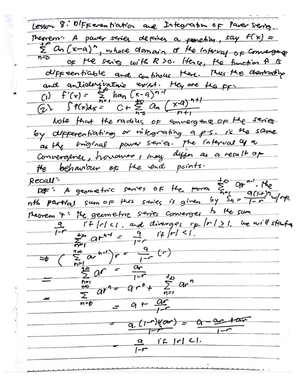 Lesson 8: Differentiation and Integration of Power Series.
Theorem: A power series defines a function, say f(x) =
∑ an(x-a)^n, whose domain is the interval of convergence
of the series with R>0. Hence, the function is
differentiable and continuous there. Thus the derivative
and antiderivative exist. They are the ff:
(1) f'(x) = ∑ n an (x-a)^n-1
(2) ∫f(x)dx = C + ∑ an (x-a)^n+1 / n+1
Note that the radius of convergence of the series
by differentiating or integrating a p.s. is the same
as the original power series. The interval of
convergence, however, may differ as a result of
the behaviour of the end points.
Recall:
Def: A geometric series of the form ∑ ar^n-1. The
nth partial sum of this series is given by Sn =
Theorem: The geometric series converges to the sum
a/1-r if |r|<1, and diverges if |r|≥1. We will start
⇒ (∑ ar^n-1) r = a/1-r (r)
= ∑ ar^n = ar/1-r
= ∑ ar^n = ar^0 + ∑ ar^n
= a + ar/1-r
= a(1-r)+ar / 1-r = a-ar+ar / 1-r
= a/1-r if |r|<1.